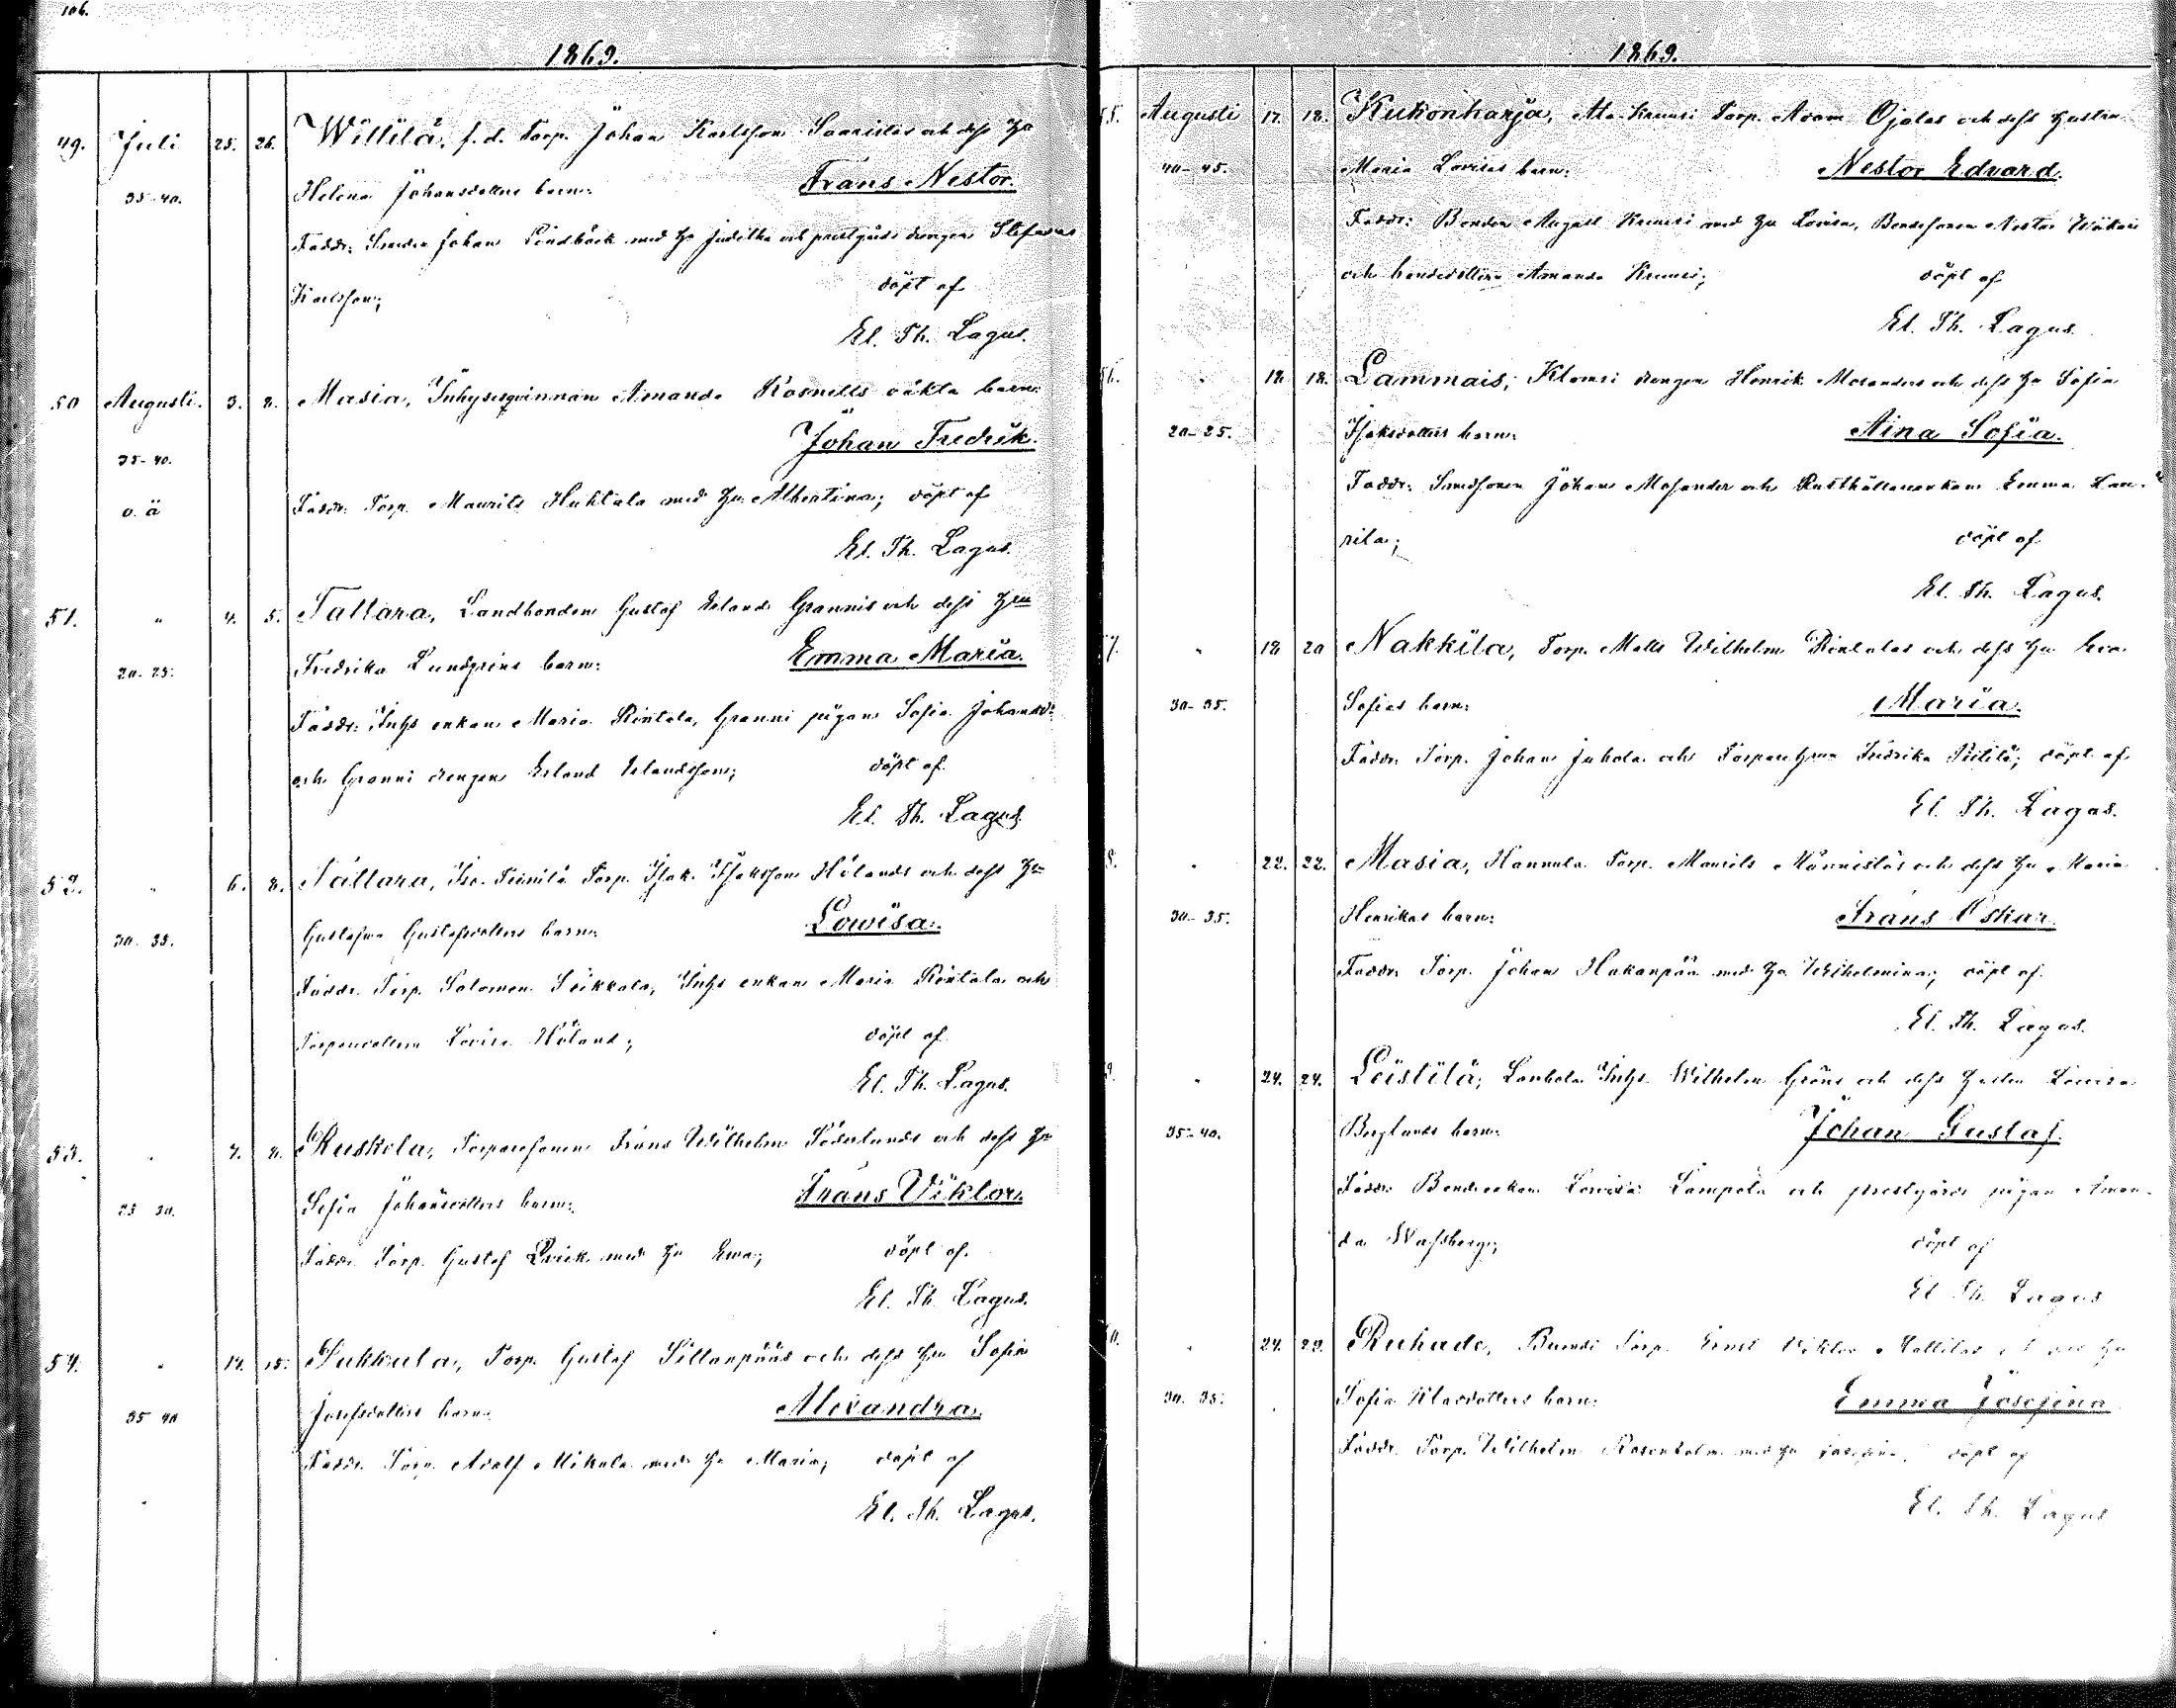 106.
1869.
49. Juli 25. 26. Willilä, f.d. Torp. Johan Karlsson Saaristos och dess hu
35-40. Helena Johansdotters barn: Frans Nestor.
Faddr: Smeden Johan Lindbäck med hu Juditha och prestgårds drengen Stefanus
Karlsson; döpt af
El. Th. Lagus.
50 Augusti. 3. 8. Masia, Inhysesqvinnan Amanda Rosnells oäkta barn:
Johan Fredrik.
35-40.
o. ä Faddr. Torp. Maurits Huhtala med hu Albertina; döpt af
El. Th. Lagus.
51. " 4. 5. Tattara, Landbonden Gustaf Erlands Grannis och dess hu
20-25. Fredrika Lundgrens barn: Emma Maria.
Faddr: Inhs enkan Maria Rintala, Granni pigan Sofia Johansd:
och Granni drengen Erland Erlandsson; döpt af
El. Th. Lagus
52. " 6. 8. Tattara, Iso Torp. Isak Isaksson Hölands och dess hu
30-35. Gustafva Gustafsdotters barn: Lowisa.
Faddr. Torp. Salomon Inhs enkan Maria Rintala och
Torparedottern Lovisa Höland; döpt af
El. Th. Lagus.
53. " 7. 8. Ruskela, Torparesonen Frans Wilhelm Söderlunds och dess hu
25 30. Sofia Johansdotters barn: Frans Viktor.
Faddr. Torp. Gustaf Qvick med hu Ewa; döpt af
El. Th. Lagus.
54. " 14. 15. Sukkula, Torp. Gustaf Sillanpääs och dess hu Sofia
35 40 Josefsdotters barn: Alexandra.
Faddr. Torp. Adolf Mikola med hu Maria; döpt af
El. Th. Lagus.
1869.
55. Augusti 17. 18. Kukonharja, Ala Kruusi Torp. Adam Ojalas och dess hustru
40-45. Maria Lovisas barn: Nestor Edvard.
Faddr: Bonden August Kruusi med hu Lovisa, Bondesonen Nestor
och bondedottern Amanda Kruusi; döpt af
El. Th. Lagus.
6. " 18. 18. Lammais, Klemri drengen Henrik Mosanders och dess hu Sofia
20-25. Isaksdotters barn: Aina Sofia.
Faddr: Smedsonen Johan Mosander och Rusthållareenkan Emma Lau-
rila; döpt af
El. Th. Lagus.
7. " 18 20 Nakkila, Torp. Matts Wilhelm Rintalas och dess hu Eva
30-35. Sofias barn: Maria.
Faddr. Torp. Johan Juhola och Torparehrun Fredrika döpt af
El. Th. Lagus.
8. " 22. 22. Masia, Hannula Torp. Maurits Männistös och dess hu Maria
30-35. Henrikas barn: Frans Oskar.
Faddr. Torp. Johan Hakanpää med hu Wilhelmina; döpt af
El. Th. Lagus.
9. " 24. 24. Leistilä, Inhs Wilhelm Gröns och dess hustru Lovisa
35-40. Berglunds barn: Johan Gustaf.
Faddr. Bondeenkan Lovisa Lampola och prestgårds pigan Aman-
da Wassberg; döpt af
El Th. Lagus
0. " 24. 29. Ruhade, Torp. Ernst Viktor Mattilas och dess hu
30. 35. Sofia Klasdotters barn: Emma Josefina
Faddr. Torp. Wilhelm Rosenholm med hu Josefina; döpt af
El. Th. Lagus